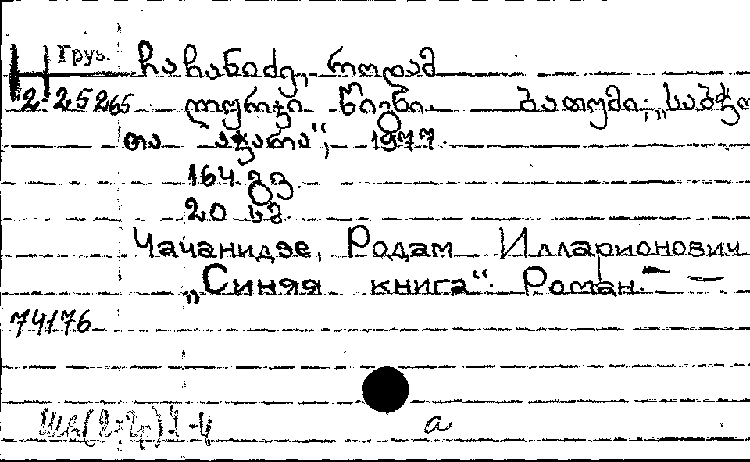 Груз. ჩაჩანიძე, როდამ
Н 2-25265 ლურჯი წიგნი. ბათუმი, „საბჭო
თა აჭარა“, 1977.
164 გვ.
20 კპ.
Чачанидзе, Родам Илларионович
„Синяя книга“. Роман. —
74176
а